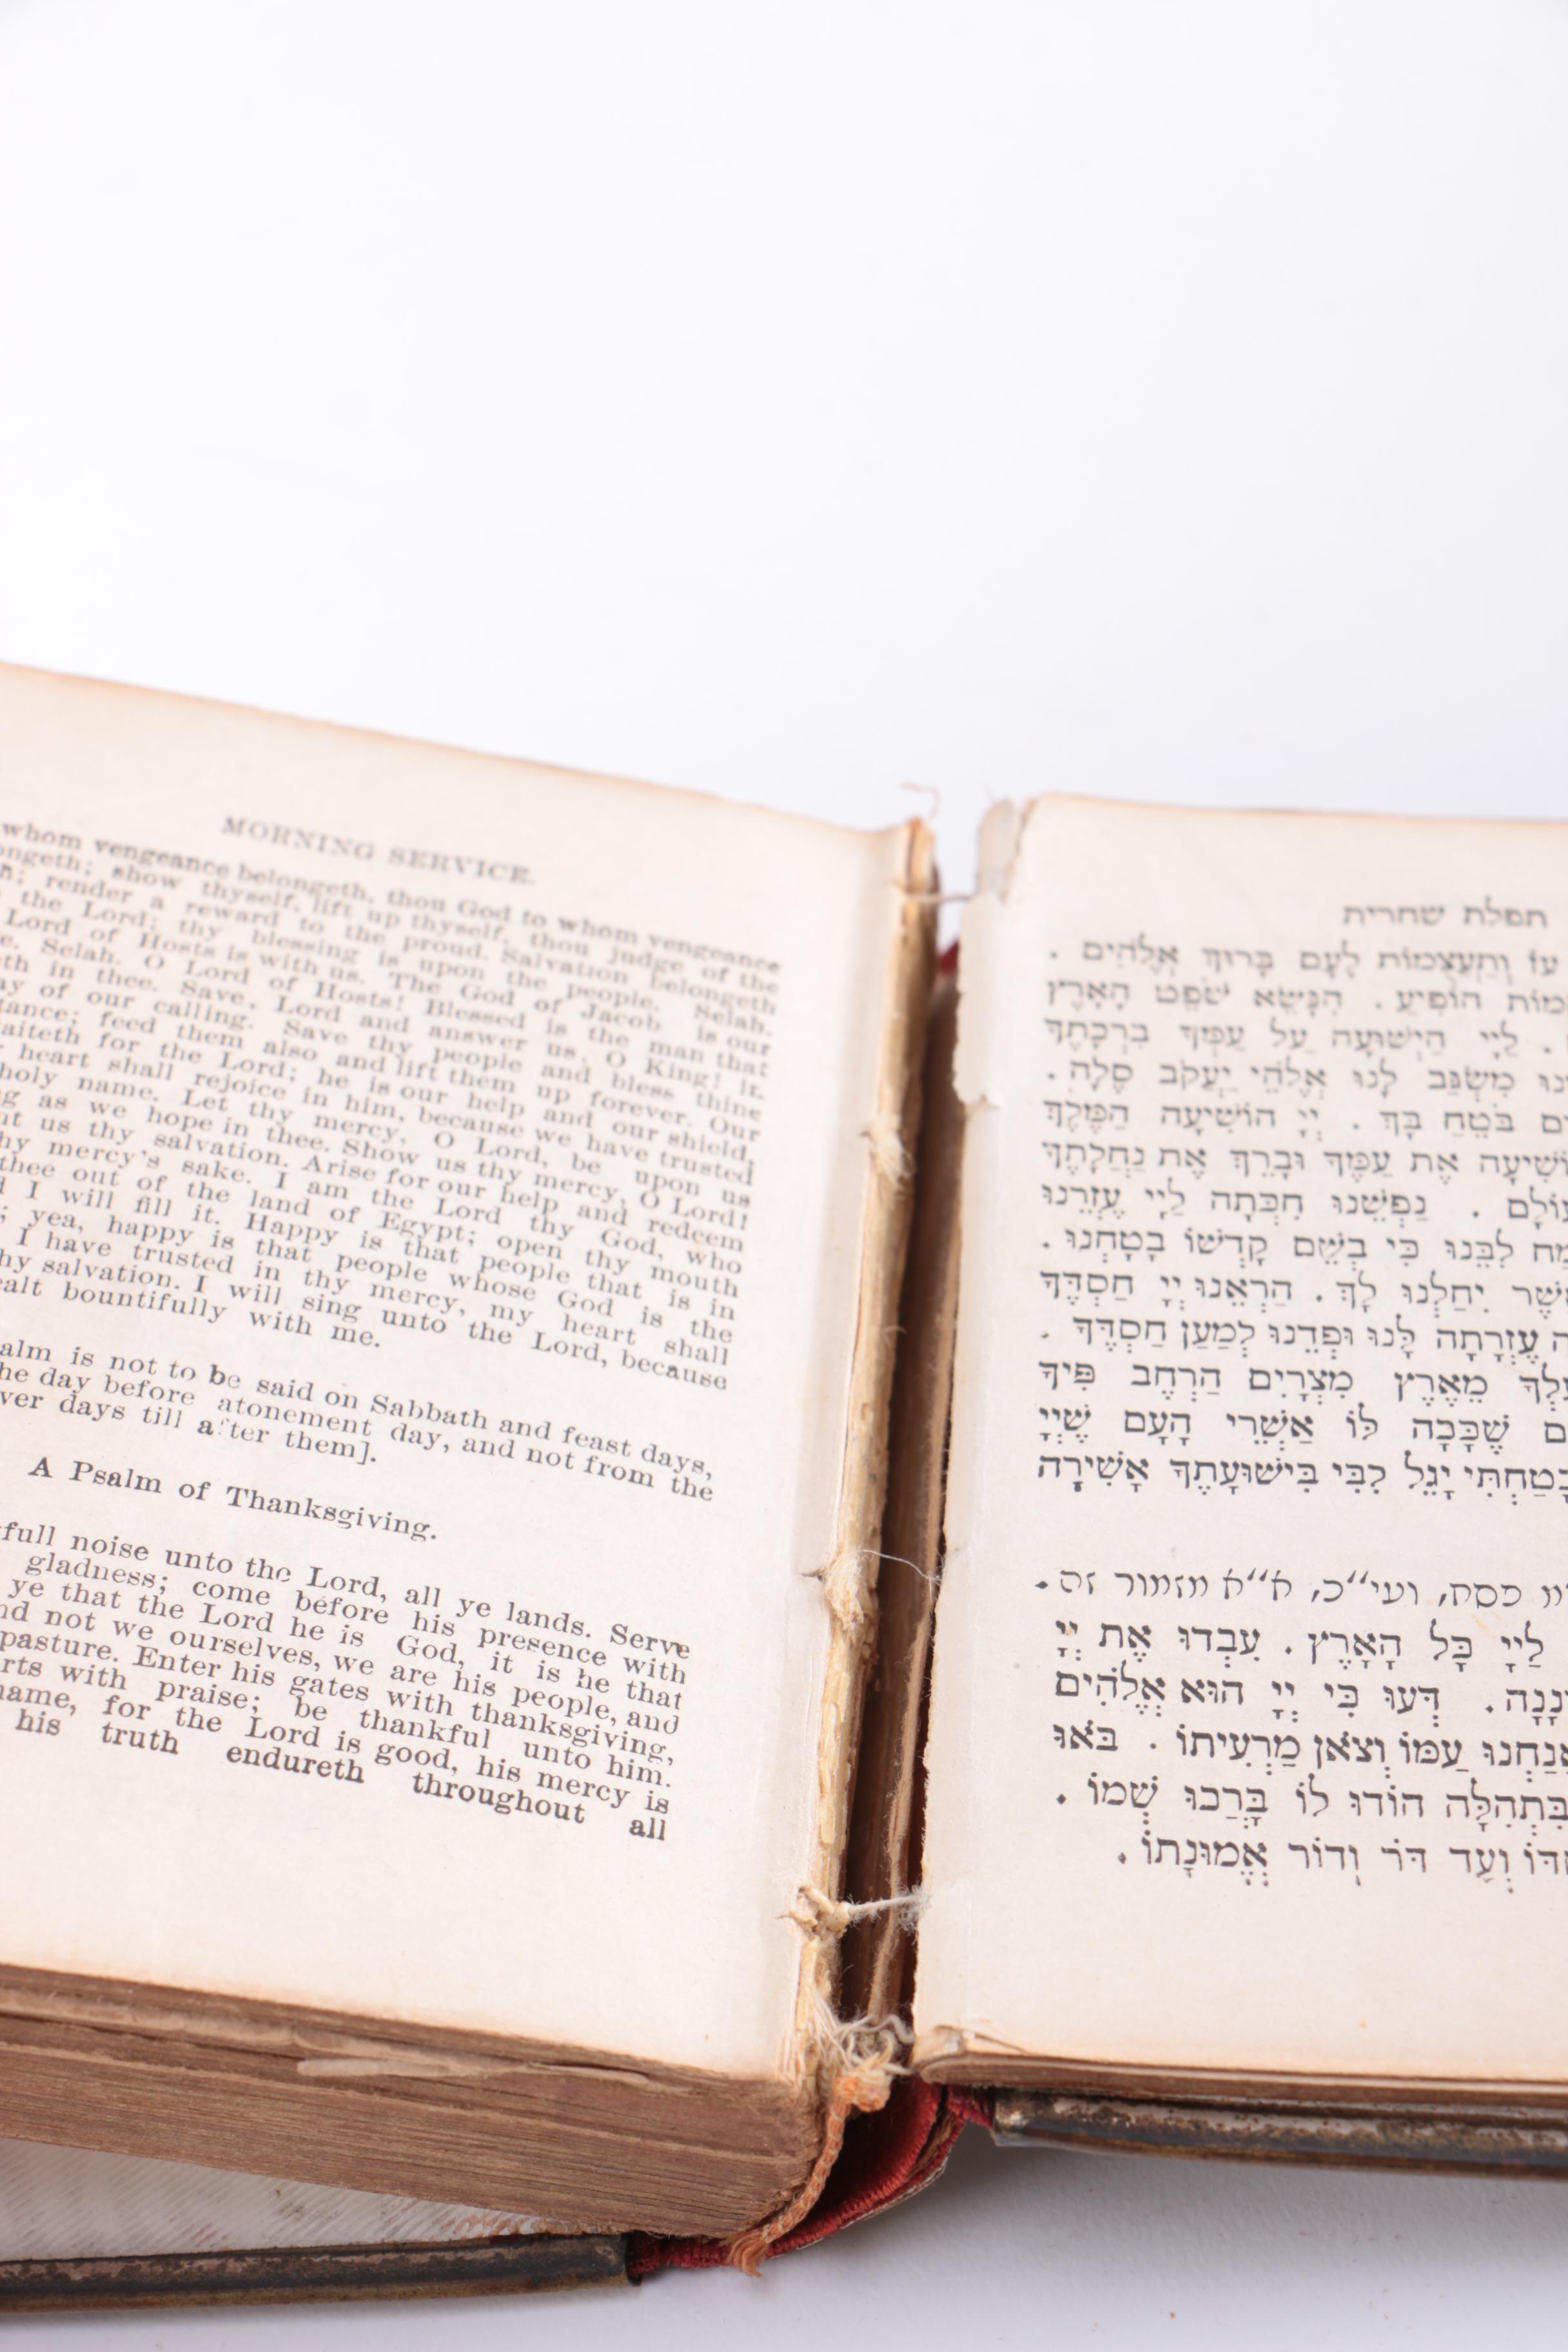 MORNING SERVICE.
whom vengeance belongeth, thou God to whom vengeance
ongeth; show thyself, lift up thyself, thou judge of the
render a reward to the proud. Salvation belongeth
the Lord; thy blessing is upon the people. Selah.
Lord of Hosts is with us. The God of Jacob is our
Selah. O Lord of Hosts! Blessed is the man that
eth in thee. Save, Lord and answer us, O King! in
ay of our calling. Save thy people and bless thine
tance; feed them also and lift them up forever. Our
aiteth for the Lord; he is our help and our shield,
heart shall rejoice in him, because we have trusted
holy name. Let thy mercy, O Lord, be upon us
as we hope in thee. Show us thy mercy, O Lord!
nt us thy salvation. Arise for our help and redeem
hy mercy's sake. I am the Lord thy God, who
thee out of the land of Egypt; open thy mouth
I will fill it. Happy is that people that is in
; yea, happy is that people whose God is the
I have trusted in thy mercy, my heart shall
hy salvation. I will sing unto the Lord, because
ealt bountifully with me.
alm is not to be said on Sabbath and feast days,
he day before atonement day, and not from the
ver days till after them].
A Psalm of Thanksgiving.
full noise unto the Lord, all ye lands. Serve
gladness; come before his presence with
ye that the Lord he is God, it is he that
nd not we ourselves, we are his people, and
pasture. Enter his gates with thanksgiving,
rts with praise; be thankful unto him.
name, for the Lord is good, his mercy is
his truth endureth throughout all
תפלת שחרית
עֹז וְתַעֲצֻמוֹת לָעָם בָּרוּךְ אֱלֹהִים .
מוֹת הוֹפִיעַ . הִנָּשֵׂא שֹׁפֵט הָאָרֶץ
. לַיָי הַיְשׁוּעָה עַל עַמְּךָ בִרְכָתֶךָ
נוּ מִשְׂגַּב לָנוּ אֱלֹהֵי יַעֲקֹב סֶלָה .
בֹּטֵחַ בָּךְ . יְיָ הוֹשִׁיעָה הַמֶּלֶךְ
וֹשִׁיעָה אֶת עַמֶּךָ וּבָרֵךְ אֶת נַחֲלָתֶךָ
עוֹלָם . נַפְשֵׁנוּ חִכְּתָה לַיָי עֶזְרֵנוּ
מַח לִבֵּנוּ כִּי בְשֵׁם קָדְשׁוֹ בָטָחְנוּ .
שֶׁר יִחַלְנוּ לָךְ . הַרְאֵנוּ יְיָ חַסְדֶּךָ
ה עֶזְרָתָה לָּנוּ וּפְדֵנוּ לְמַעַן חַסְדֶּךָ .
לְךָ מֵאֶרֶץ מִצְרָיִם הַרְחֶב פִּיךָ
ם שֶׁכָּכָה לּוֹ אַשְׁרֵי הָעָם שֶׁיְיָ
בָטַחְתִּי יָגֵל לִבִּי בִּישׁוּעָתֶךָ אָשִׁירָה
פסח, ועי״כ, א״א מזמור זה .
לַיָי כָּל הָאָרֶץ . עִבְדוּ אֶת יְיָ
נָנָה . דְּעוּ כִּי יְיָ הוּא אֱלֹהִים
אֲנַחְנוּ עַמּוֹ וְצֹאן מַרְעִיתוֹ . בֹּאוּ
בִּתְהִלָּה הוֹדוּ לוֹ בָּרֲכוּ שְׁמוֹ .
דּוֹ וְעַד דֹּר וָדוֹר אֱמוּנָתוֹ .